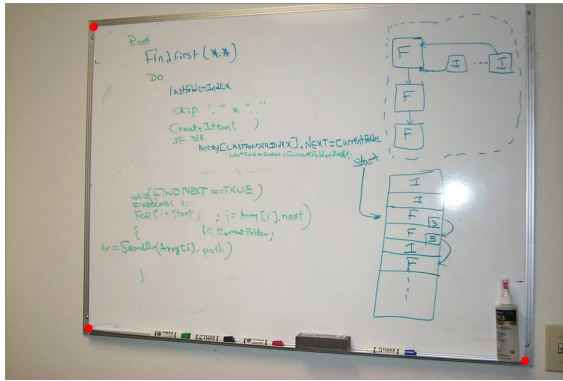 Root
Find first (*.*)
DO
lastfolderIndex
Skip "." & ".."
CreateItem( )
IF DIR
Array[LASTFOLDERINDEX].NEXT=CurrentFolder
LastFolderIndex=CurrentFolderIndex;
while(FINDNEXT ==TRUE)
FINDCLOSE ();
FOR(i=start, ; i=Array[i].next)
{ i< CurrentFolder;
hr=SearchDir(Array[i].path)
}
F
I
I
F
F
Start
I
I
F
F
I
F